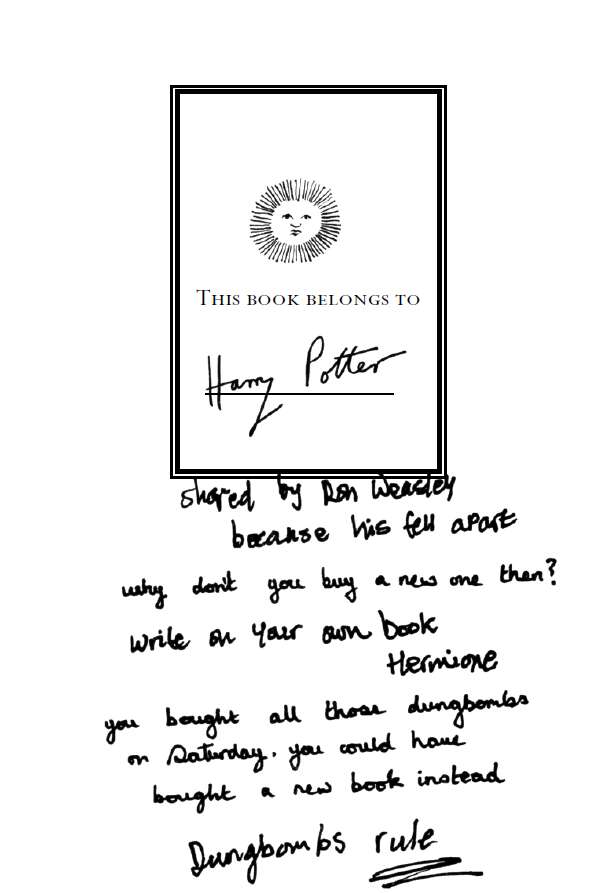 THIS BOOK BELONGS TO
Harry Potter
shared by Ron Weasley
because his fell apart
why don't you buy a new one then?
Write on your own book
Hermione
you bought all those dungbombs
on Saturday. you could have
bought a new book instead
Dungbombs rule